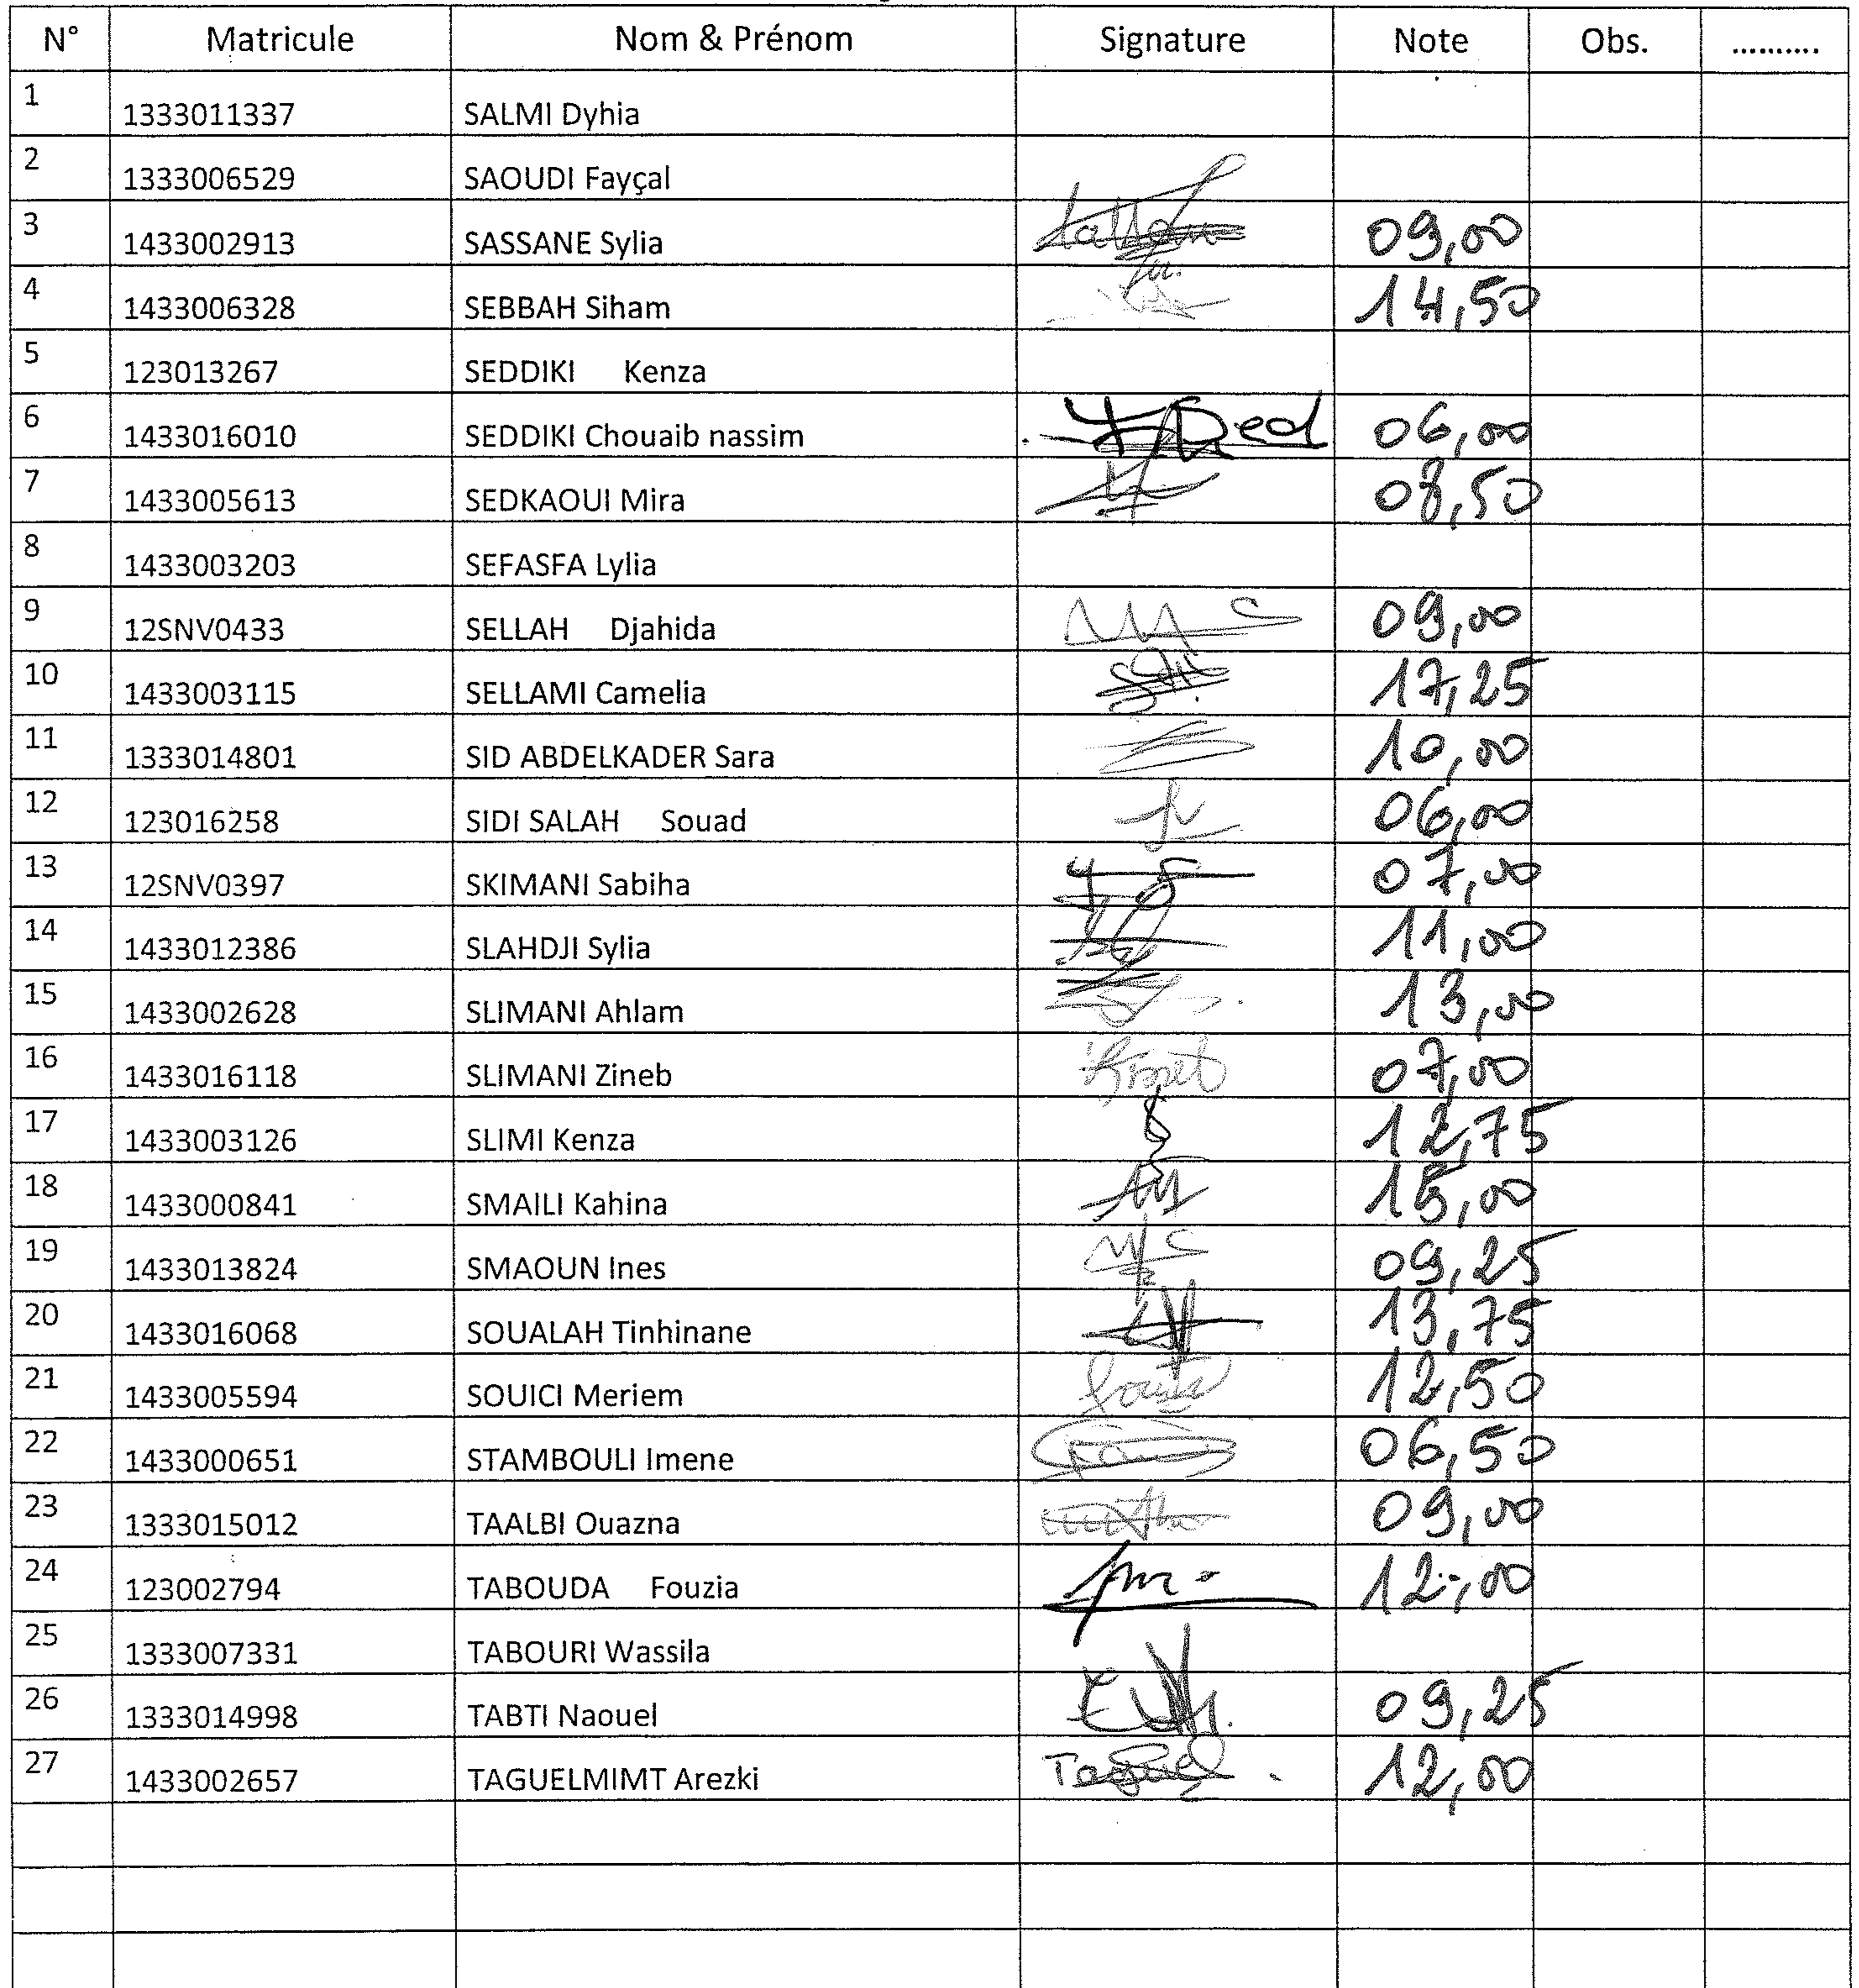 N° Matricule Nom & Prénom Signature Note Obs. ..........
1 1333011337 SALMI Dyhia
2 1333006529 SAOUDI Fayçal
3 1433002913 SASSANE Sylia 09,00
4 1433006328 SEBBAH Siham 14,50
5 123013267 SEDDIKI Kenza
6 1433016010 SEDDIKI Chouaib nassim 06,00
7 1433005613 SEDKAOUI Mira 08,50
8 1433003203 SEFASFA Lylia
9 12SNV0433 SELLAH Djahida 09,00
10 1433003115 SELLAMI Camelia 17,25
11 1333014801 SID ABDELKADER Sara 10,00
12 123016258 SIDI SALAH Souad 06,00
13 12SNV0397 SKIMANI Sabiha 07,00
14 1433012386 SLAHDJI Sylia 11,00
15 1433002628 SLIMANI Ahlam 13,00
16 1433016118 SLIMANI Zineb 07,00
17 1433003126 SLIMI Kenza 12,75
18 1433000841 SMAILI Kahina 15,00
19 1433013824 SMAOUN Ines 09,25
20 1433016068 SOUALAH Tinhinane 13,75
21 1433005594 SOUICI Meriem 12,50
22 1433000651 STAMBOULI Imene 06,50
23 1333015012 TAALBI Ouazna 09,00
24 123002794 TABOUDA Fouzia 12,00
25 1333007331 TABOURI Wassila
26 1333014998 TABTI Naouel 09,25
27 1433002657 TAGUELMIMT Arezki 12,00